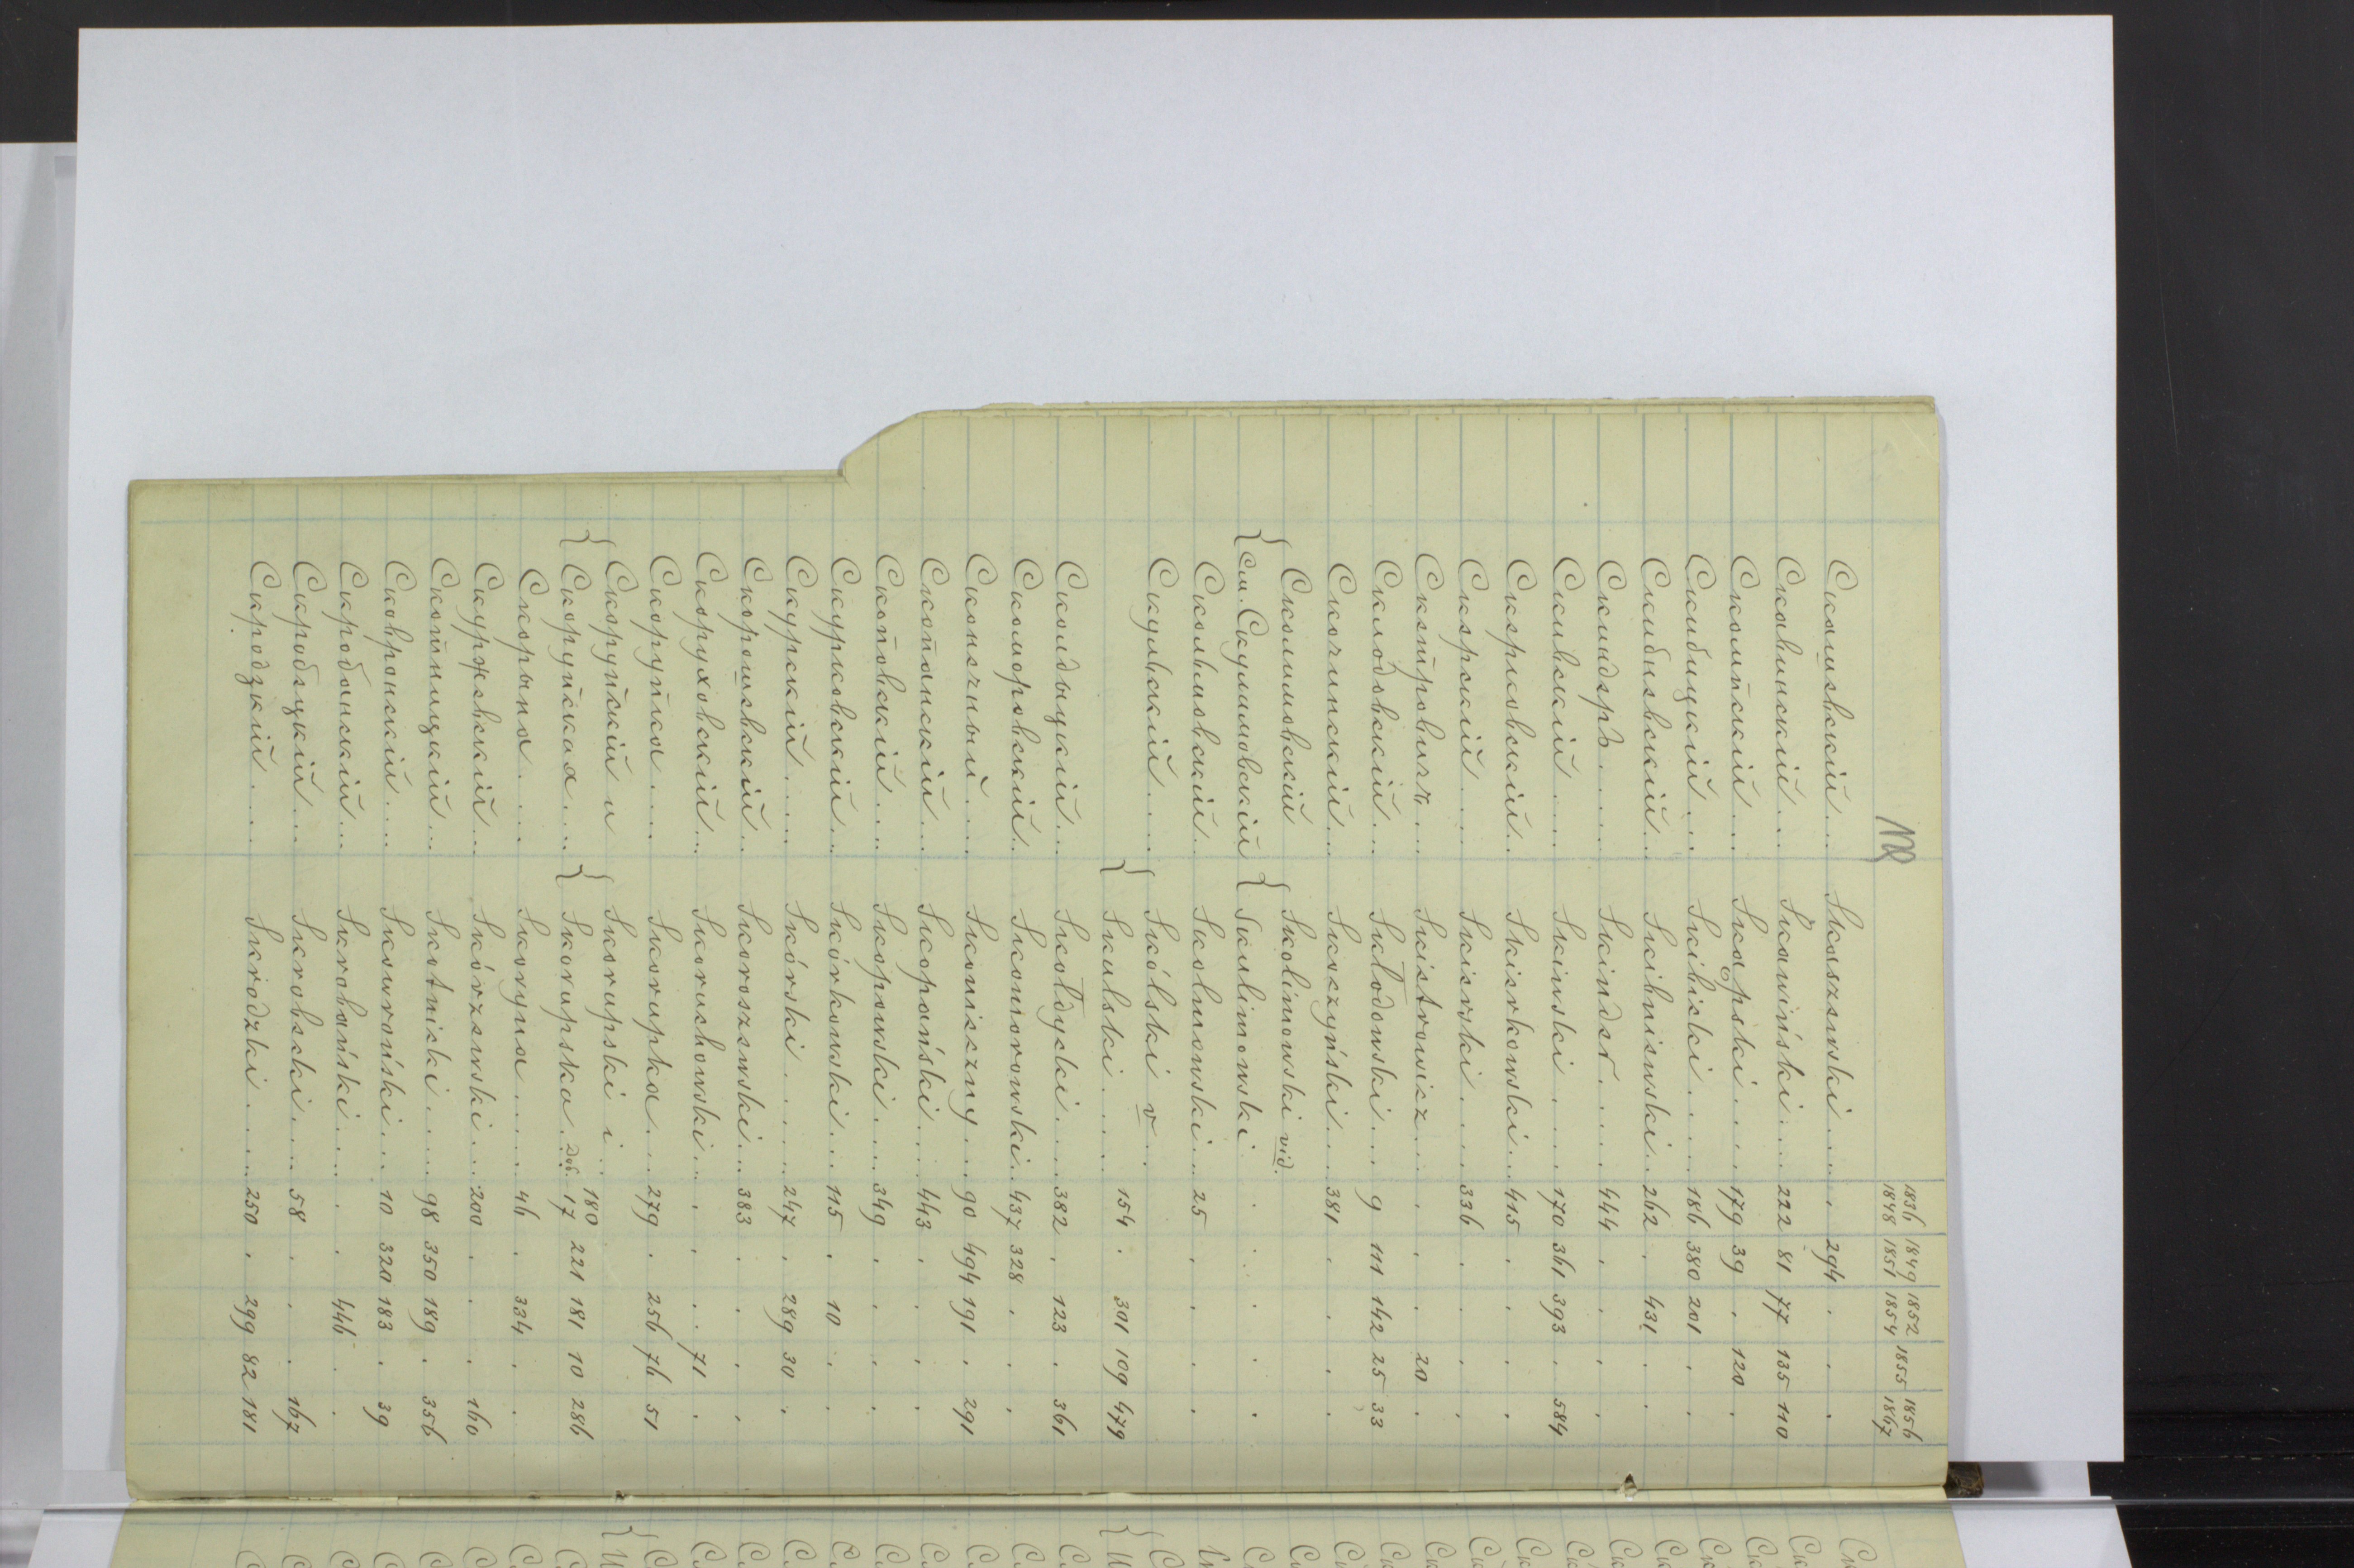 1836 1849 1852 1855 1856
1848 1851 1854 1867
Скашевскій ... Skaszewski ... . 294 . . .
Скавинскій ... Skawiński ... 222 81 77 135 110
Скомпскій ... Skąpski ... 179 39 . 120 .
Скибицкій ... Skibicki ... 186 380 201 . .
Скибневскій ... Skibniewski ... 262 . 431 . .
Скиндеръ ... Skinder ... 444 . . . .
Скивскій ... Skiwski ... 170 361 393 . 584
Скерковскій ... Skierkowski ... 415 . . . .
Скерскій ... Skierski ... 336 . . . .
Скетровичъ ... Skietrowicz ... . . . 20 .
Склодовскій ... Skłodowski ... 9 111 142 25 33
Скочинскій ... Skoczyński ... 381 . . . .
Сколимовскій { Skolimowski vid.
{ См. Скулимовскій { Skulimowski . . . . .
Сколмовскій ... Skolmowski ... 25 . . . .
Скульскій ... } Skólski v .
} Skulski ... 154 . 301 109 479
Сколдыцкій ... Skołdycki ... 382 . 123 . 361
Скоморовскій .. Skomorowski .. 437 328 . . .
Сконечный ... Skonieczny ... 90 494 191 . 291
Скопанскій ... Skopański ... 443 . . . .
Скоповскій ... Skopowski ... 349 . . . .
Скурковскій .. Skórkowski ... 115 . 10 . .
Скурскій ... Skórski ... 247 . 289 30 .
Скорошевскій .. Skoroszewski ... 383 . . . .
Скоруховскій ... Skoruchowski ... . . . 71 .
Скорупка ... Skorupka ... 279 . 256 76 51
Скорупскій и } Skorupski i ... 180
{ Скорупская ... } Skorupska ... 17 221 181 10 286
Скорына ... Skoryna ... 46 . 334 . .
Скуржевскій ... Skórzewski ... 200 . . . 160
Скотницкій ... Skotnicki ... 98 350 189 . 356
Сковронскій ... Skowroński ... 10 320 183 . 39
Скробанскій ... Skrobański ... . . 446 . .
Скробецкій ... Skrobecki ... 58 . . . 167
Скродзкій ... Skrodzki ... 250 . 299 82 181